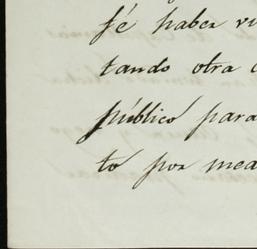 fé haber vi
tando otra
público para
to por mea